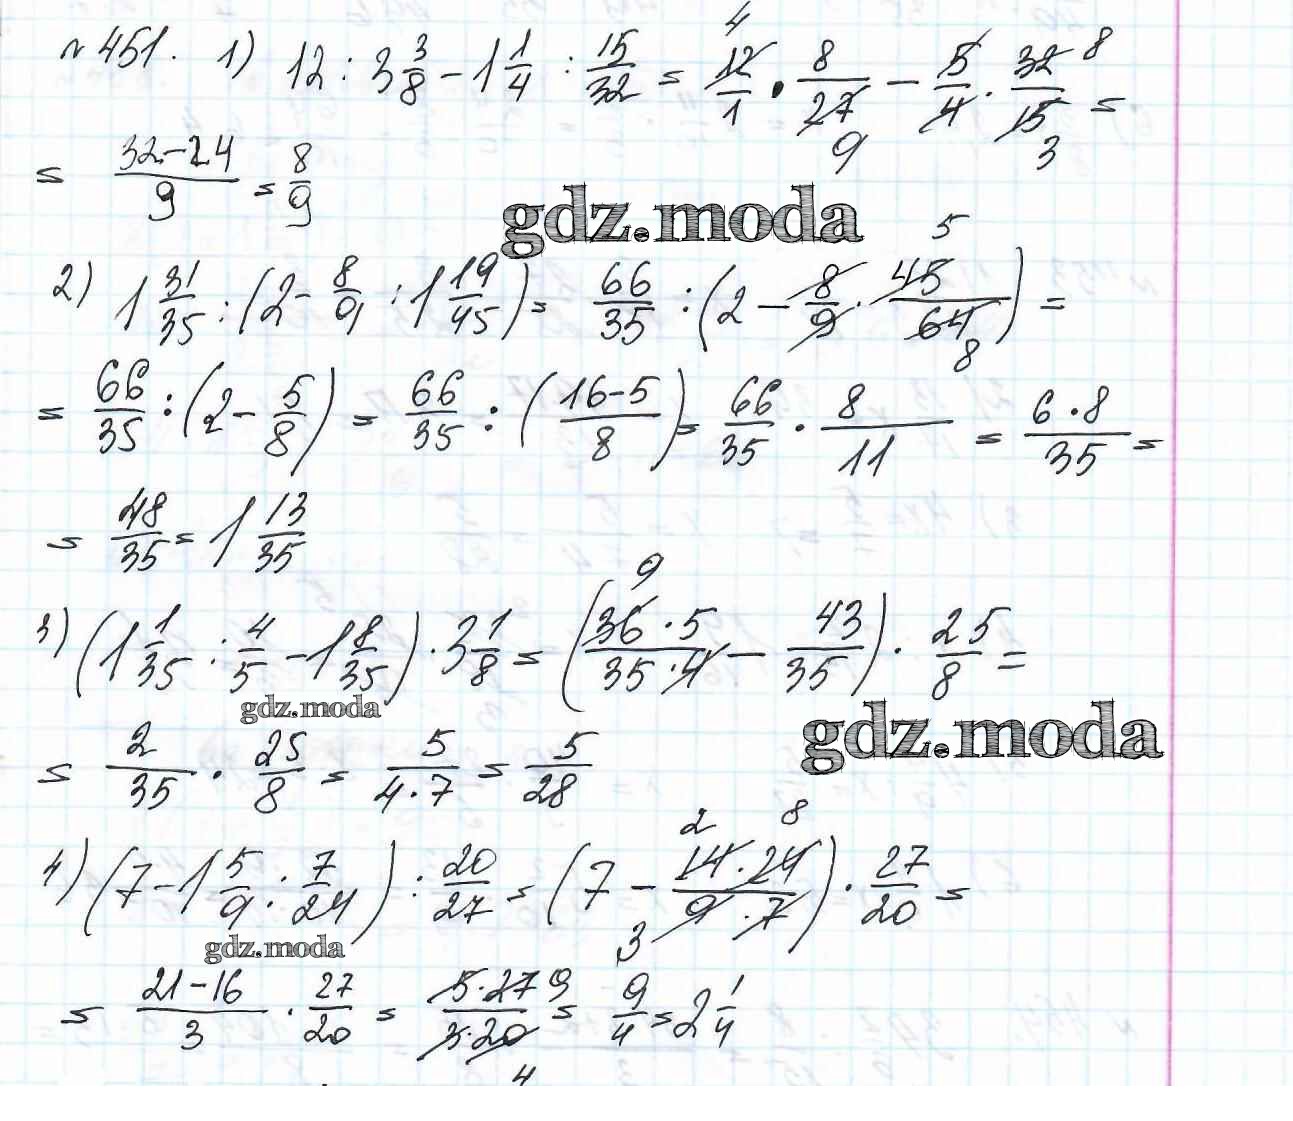 №451. 1) 12 : 3 3/8 - 1 1/4 : 15/32 = 12/1 · 8/27 - 5/4 · 32/15 =
= (32-24)/9 = 8/9
gdz.moda
2) 1 31/35 : (2 - 8/9 : 1 19/45) = 66/35 : (2 - 8/9 · 45/64) =
= 66/35 : (2 - 5/8) = 66/35 : ((16-5)/8) = 66/35 · 8/11 = (6·8)/35 =
= 48/35 = 1 13/35
3) (1 1/35 : 4/5 - 1 8/35) · 3 1/8 = ((36·5)/(35·4) - 43/35) · 25/8 =
gdz.moda
gdz.moda
= 2/35 · 25/8 = 5/(4·7) = 5/28
4) (7 - 1 5/9 : 7/24) : 20/27 = (7 - (14·24)/(9·7)) · 27/20 =
gdz.moda
= (21-16)/3 · 27/20 = (5·27)/(3·20) = 9/4 = 2 1/4